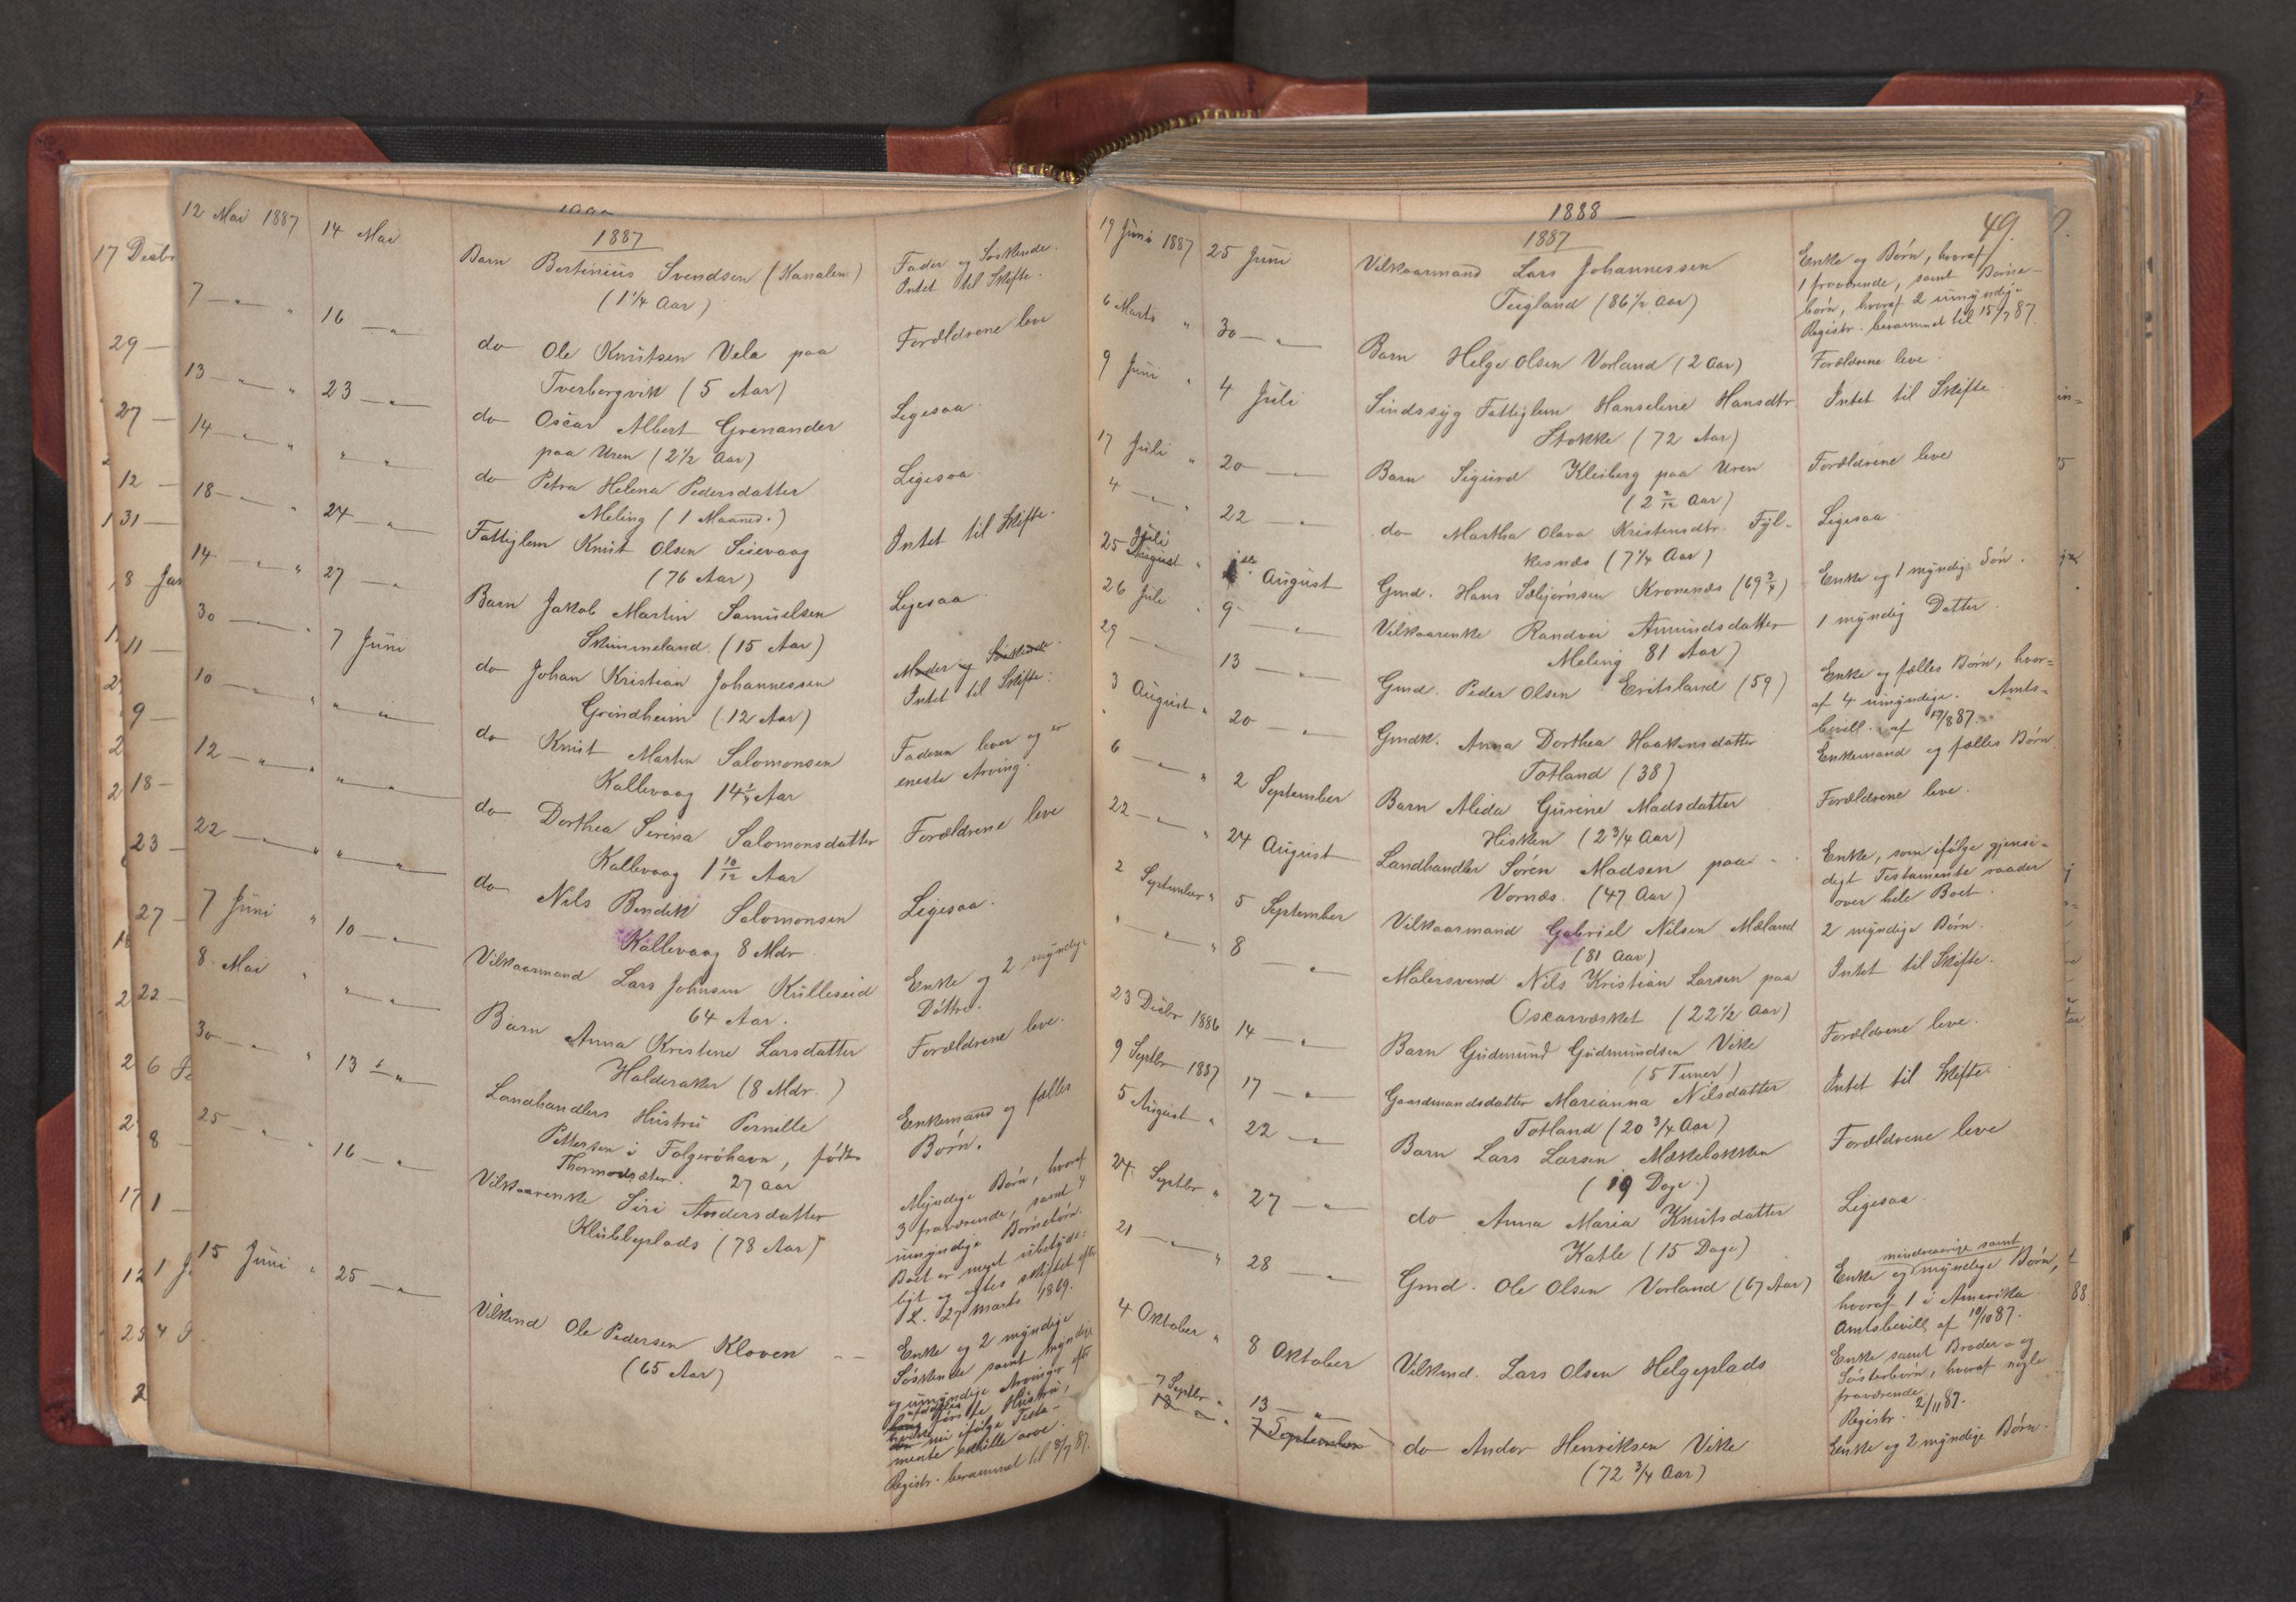 1887
12 Mai 1887 14 Mai Barn Bertinius Svendsen (Kanalen) Fader og Søskende.
(1 1/4 Aar) Intet til Skifte.
7 — " — " 16 — " — do Ole Knutsen Vela paa Forældrene leve
Tverborgvik (5 Aar)
13 — " — " 23 — " — do Oscar Albert Grenander Ligesaa.
paa Uren (2 1/2 Aar)
14 — " — " " — " — do Petra Helena Pedersdatter Ligesaa.
Meling (1 Maaned.)
18 — " — " 24 — " — Fattiglem Knut Olsen Seievaag Intet til Skifte.
(76 Aar)
14 — " — " 27 — " — Barn Jakob Martin Samuelsen Ligesaa.
Skimmeland. (15 Aar)
30 — " — " 7 Juni do Johan Kristian Johannessen Moder og Søskende.
Grindheim (12 Aar) Intet til Skifte.
10 — " — " " — " — do Knut Martin Salomonsen Faderen lever og er
Kallevaag 14 1/4 Aar eneste Arving.
12 — " — " " — " — do Dorthea Serina Salomonsdatter Forældrene leve
Kallevaag 1 10/12 Aar
22 — " — " " — " — do Nils Bendik Salomonsen Ligesaa.
Kallevaag 8 Mdr.
7 Juni " 10 — " — Vilkaarmand Lars Johnsen Kulleseid Enke og 2 myndige
64 Aar. Døttre.
8 Mai " " — " — Barn Anna Kristine Larsdatter Forældrene leve.
Halderaker (8 Mdr.)
30 — " — " 13 — " — Landhandlers Hustru Pernille Enkemand og fælles
Pettersen i Folgerøhavn, født Børn.
Thormodsæter. 27 Aar
25 — " — " 16 — " — Vilkaarenke Siri Andersdatter Myndige Børn, hvoraf
Klubbeplads (78 Aar) 3 fraværende, samt 4
umyndige Børnebørn.
Boet er meget ubetyde-
ligt og skiftet efter
L. 27 Marts 1869.
15 Juni " 25 — " — Vilkmd Ole Pedersen Kloven — — Enke og 2 myndige
(65 Aar) Søskende samt myndige
og umyndige Arvinger efter
afdødes første Hustru,
hvilke nu ifølge Testa-
mente skulle arve.
Registr. berammet til 8/7 87.
1888
1887
49.
19 Juni 1887 25 Juni Vilkaarmand Lars Johannessen Enke og Børn, hvoraf
Teigland (86 1/2 Aar) 1 fraværende, samt Børne-
børn, hvoraf 2 umyndige
Registr. berammet til 15/7 87.
6 Marts " 30 — " — Barn Helge Olsen Vorland (2 Aar) Forældrene leve
9 Juni " 4 Juli Sindssyg Fattiglem Hanseline Hansdtr. Intet til Skifte
Stokke (72 Aar)
17 Juli " 20 — " — Barn Sigurd Kleiberg paa Uren Forældrene leve
(2 2/12 Aar)
4 — " — " 22 — " — do Martha Olava Kristensdtr. Fyl- Ligesaa
kesnæs (7 1/4 Aar)
25 Juli August " 1ste August Gmd. Hans Sæbjørnsen Kronenæs (69 3/4) Enke og 1 myndig Søn.
26 Juli " 9 — " — Vilkaarenke Randvei Amundsdatter 1 myndig Datter
Meling 81 Aar)
29 — " — 13 — " — Gmd. Peder Olsen Eritsland (59) Enke og fælles Børn, hvor-
af 4 umyndige. Amts-
bevill. af 17/8 87.
3 August " 20 — " — Gmdk. Anna Dorthea Haakensdatter Enkemand og fælles Børn
Totland (38)
6 — " — " 2 September Barn Alida Gurine Madsdatter Forældrene leve.
Hisken (2 3/4 Aar)
22 — " — " 24 August Landhandler Søren Madsen paa Enke, som ifølge gjensi-
Vornæs. (47 Aar) digt Testamente raader
over hele Boet.
2 September " 5 September Vilkaarmand Gabriel Nilsen Mæland 2 myndige Børn.
(81 Aar)
" — " — " 8 — " — Malersvend Nils Kristian Larsen paa Intet til Skifte.
Oscarværket (22 1/2 Aar)
23 Decbr 1886 14 — " — Barn Gudmund Gudmundsen Vike Forældrene leve.
(5 Timer)
9 Septbr 1887 17 — " — Gaardmandsdatter Marianna Nilsdatter Intet til Skifte
Totland (20 3/4 Aar)
5 August " 22 — " — Barn Lars Larsen Mækelokken Forældrene leve
(19 Dage)
24 Septbr " 27 — " — do Anna Maria Knutsdatter Ligesaa
Katle (15 Dage)
21 — " — " 28 — " — Gmd. Ole Olsen Vorland (67 Aar) Enke og mindreaarige samt myndige Børn,
hvoraf 1 i Amerika
Amtsbevill. af 10/10 87.
4 Oktober " 8 Oktober Vilkmd. Lars Olsen Helgeplads Enke samt Broder- og
Søsterbørn, hvoraf nogle
fraværende.
Registr. 2/11 87.
7 Septbr " 13 — " — do Ander Henriksen Vike Enke og 2 myndige Børn.
7 September (72 3/4 Aar)